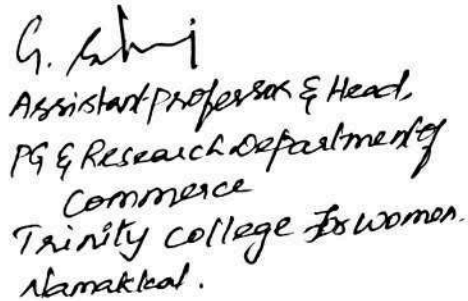 G.
Assistant Professor & Head,
PG & Research Department of
Commerce
Trinity College for Women.
Namakkal.